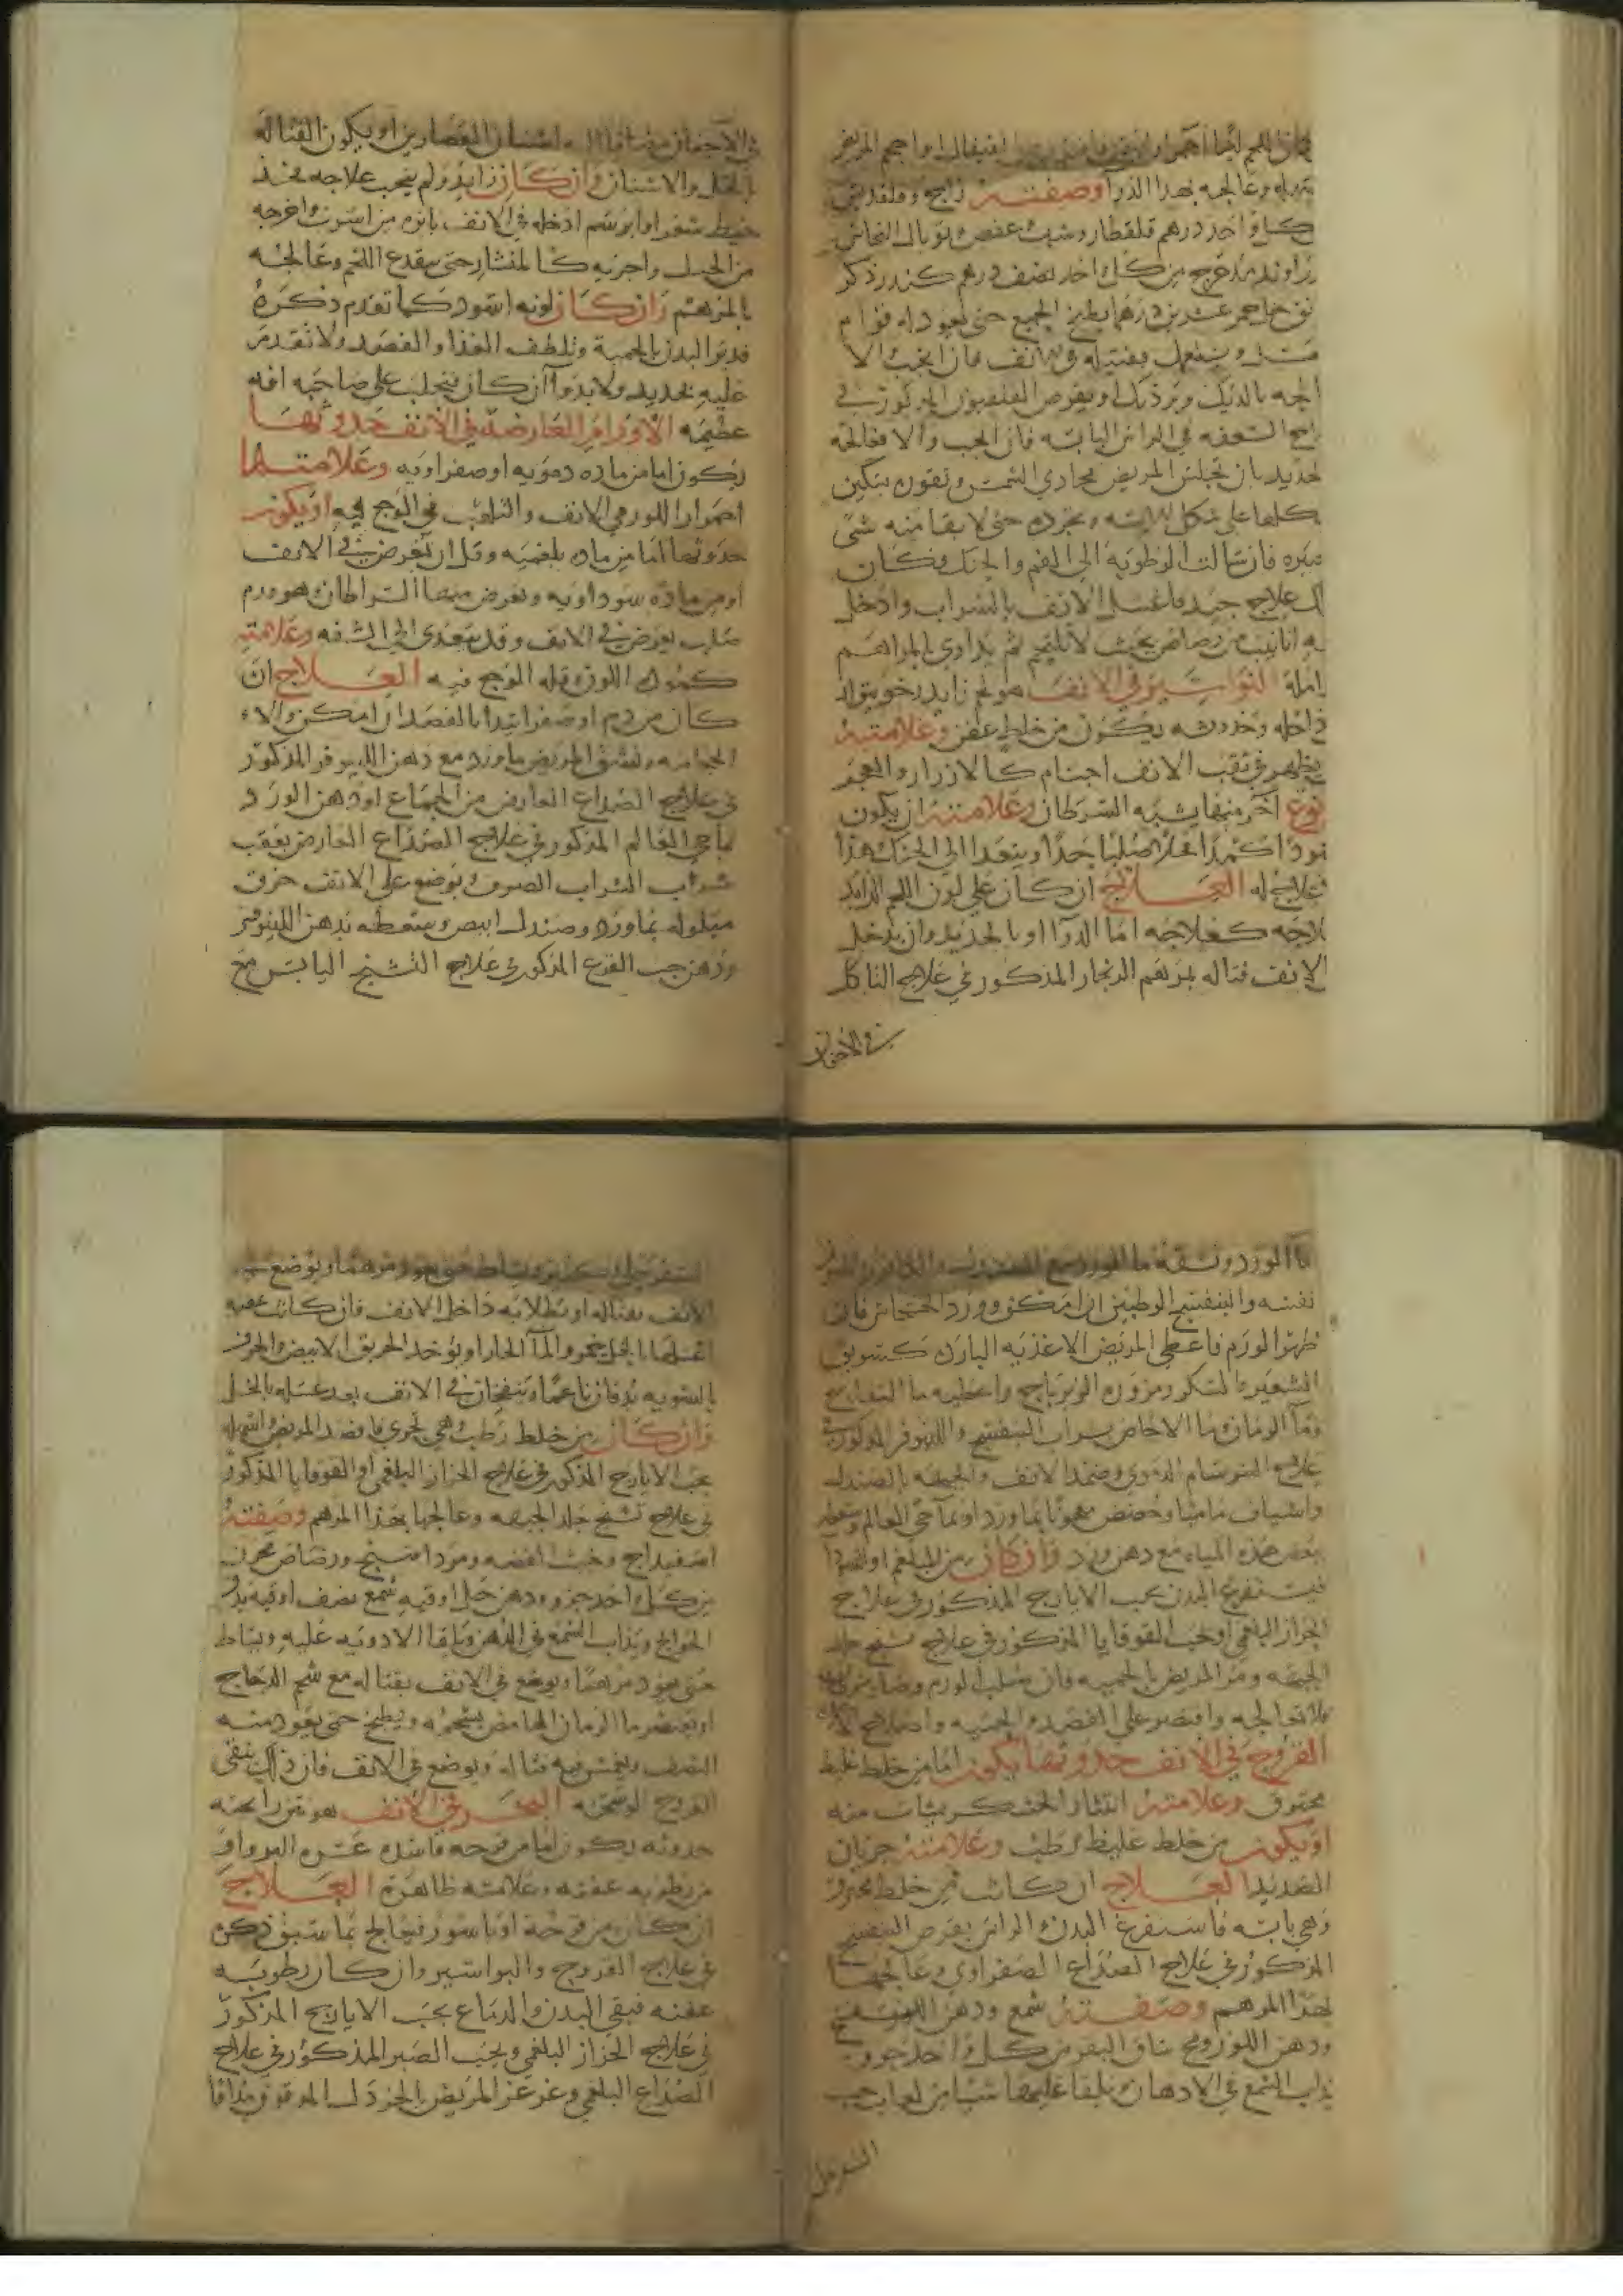 فان كان اللحم لينا احمرا
وعالجه بهذا الذرا وصفته زاج وقلقديس
كل واحد درهم قلقطار وشب عفص توبال النحاس
زراوند مدحرج من كل واحد نصف درهم كندر ذكر
عشرين درهما يطبخ الجميع حتى يعود له قوام
ويستعمل بفتيله في الانف فان انجب والا
السعفه في الراس اليابسه فان انجب والا فعالجه
بان تجلس المريض محاذي الشمس وتقوره بسكين
على شكل وتجرده حتى لا يبقا منه شي
فان سالت الرطوبة الى الفم والحنك فكان
علاج جيد فاغسل الانف بالشراب وادخل
انابيب من رصاص بحيث لا يلتحم ثم يداوى بالمراهم
البواسير في الانف هو لحم زايد رخو يتولد
داخله وحدوثه يكون من خلط عفن وعلامته
يظهر في ثقب الانف اجسام كالازرار والعجز
نوع اخر منها يشبه السرطان وعلامته ان يكون
صلبا جدا ويتعدا الى الحنك هذا
علاج له العلاج ان كان على لون اللحم الزايد
كعلاجه اما الدوا او بالحديد وان يدخل
الانف فتاله بمرهم الزنجار المذكور في علاج التاكل
في الاجفان
في الاجفان مضافا اليه اشنان العصارين او يكون الفتاله
بالخل والاشنان وان كان زايد ولم ينجب علاجه فخذ
خيط شعر او ابريسم ادخله في الانف بابره من اسرب واخرجه
من الحنك واجريه كالمنشار حتى ينقدع اللحم وعالجه
بالمرهم وان كان لونه اسود كما تقدم ذكره
فدبر البدن بالحمية وتلطف الغذا والفصد ولا تقدم
عليه بحديد ولا بدوا ان كان ينجلب على صاحبه افه
عظيمه الاورام العارضة في الانف حدوثها
يكون اما من ماده دمويه او صفراويه وعلامتها
احمرار اللون في الانف والتلهب في الوجع فيه او يكون
حدوثها اما من ماده بلغميه وقل ان تعرض في الانف
او من مادة سوداويه وتعرض منها السراطان وهو ورم
صلب يعرض في الانف وقد يتعدى الى الشفه وعلامته
كمودة اللون وقلة الوجع فيه العلاج ان
كان من دم او صفرا تبدا بالفصد ان امكن والا
الحجامه وتنشق المريض ماورد مع دهن اللينوفر المذكور
في علاج الصداع العارض من الجماع او دهن الورد
بما حي العالم المذكور في علاج الصداع العارض بعقب
شراب الشراب الصرف ويوضع على الانف خرق
مبلوله بماورد وصندل ابيض وتسعطه بدهن اللينوفر
ودهن حب القرع المذكور في علاج التشنج اليابس مع
ماالورد وتسقه ما الورد مع الصندل والكافور
والبنفسج الرطبين ان امكن وورد الخشخاش فان
ظهر الورم فاعطي المريض الاغذيه البارده كسويق
الشعير بالسكر ومزورة الزيرباج واعطيه ما التفاح
وما الرمان وما الاجاص بشراب البنفسج واللينوفر المذكور في
علاج البرسام الدموي وضمد الانف والجبهه بالصندل
واشياف ماميثا وحضض معجونا بماورد او بما حي العالم
بعض هذه المياه مع دهن ورد وان كان من البلغم او السودا
فيستفرغ البدن بحب الايارج المذكور في علاج
الحزاز البلغمي او بحب القوقايا المذكور في علاج تشنج جلد
الجبهه ومر المريض بالحميه فان صلب الورم
فلا تعالجه واقتصر على الفصد والحميه واصلاح
القروح في الانف حدوثها يكون اما من خلط غليظ
محترق وعلامته انتثار الخشكريشات منه
او يكون من خلط غليظ رطب وعلامته جريان
الصديد العلاج ان كانت من خلط محترق
وهي يابسه فاستفرغ البدن والراس بقرص البنفسج
المذكور في علاج الصداع الصفراوي وعالجها
بهذا المرهم وصفته شمع ودهن البنفسج
ودهن اللوز ومخ ساق البقر من كل واحد جزو
يذاب الشمع في الادهان ويلقا عليها شيا من لعاب حب
السفرجل
السفرجل
الانف بفتاله او تطلا به داخل الانف فان كانت
اغسلها بالخل بخمر والما الحار او يوخذ الخربق الابيض والحرف
بالسويه يدقان ناعما وينفخان في الانف بعد غسله بالخل
وان كان من خلط رطب وهي تجري فافصد المريض واسهله
بحب الايارج المذكور في علاج الحزاز البلغمي او القوقايا المذكور
في علاج تشنج جلد الجبهه وعالجها بهذا المرهم وصفته
اسفيداج وخبث الفضه ومرداسنج ورصاص محرق
من كل واحد جزو ودهن خل اوقيه شمع نصف اوقيه يدق
الحوايج ويذاب الشمع في الدهن ويلقا الادويه عليه ويساط
حتى يعود مرهما ويوضع في الانف بفتاله مع شحم الدجاج
او يعتصر ما الرمان الحامض بشحمه ويطبخ حتى يعود منه
النصف ويغمس فيه فتاله ويوضع في الانف فان ذلك ينقي
القروح الوسخه البخر في الانف هو نتن رايحته
حدوثه يكون اما من قرحه فاسده عسره البرو او
من رطوبه عفنه وعلامته ظاهرة العلاج
ان كان من قرحة او باسور فيعالج بما سبق ذكره
في علاج القروح والبواسير وان كان رطوبه
عفنه فينقي البدن والدماغ بحب الايارج المذكور
في علاج الحزاز البلغمي وبحب الصبر المذكور في علاج
الصداع البلغمي وغرغر المريض بالخردل المدقوق مدافا